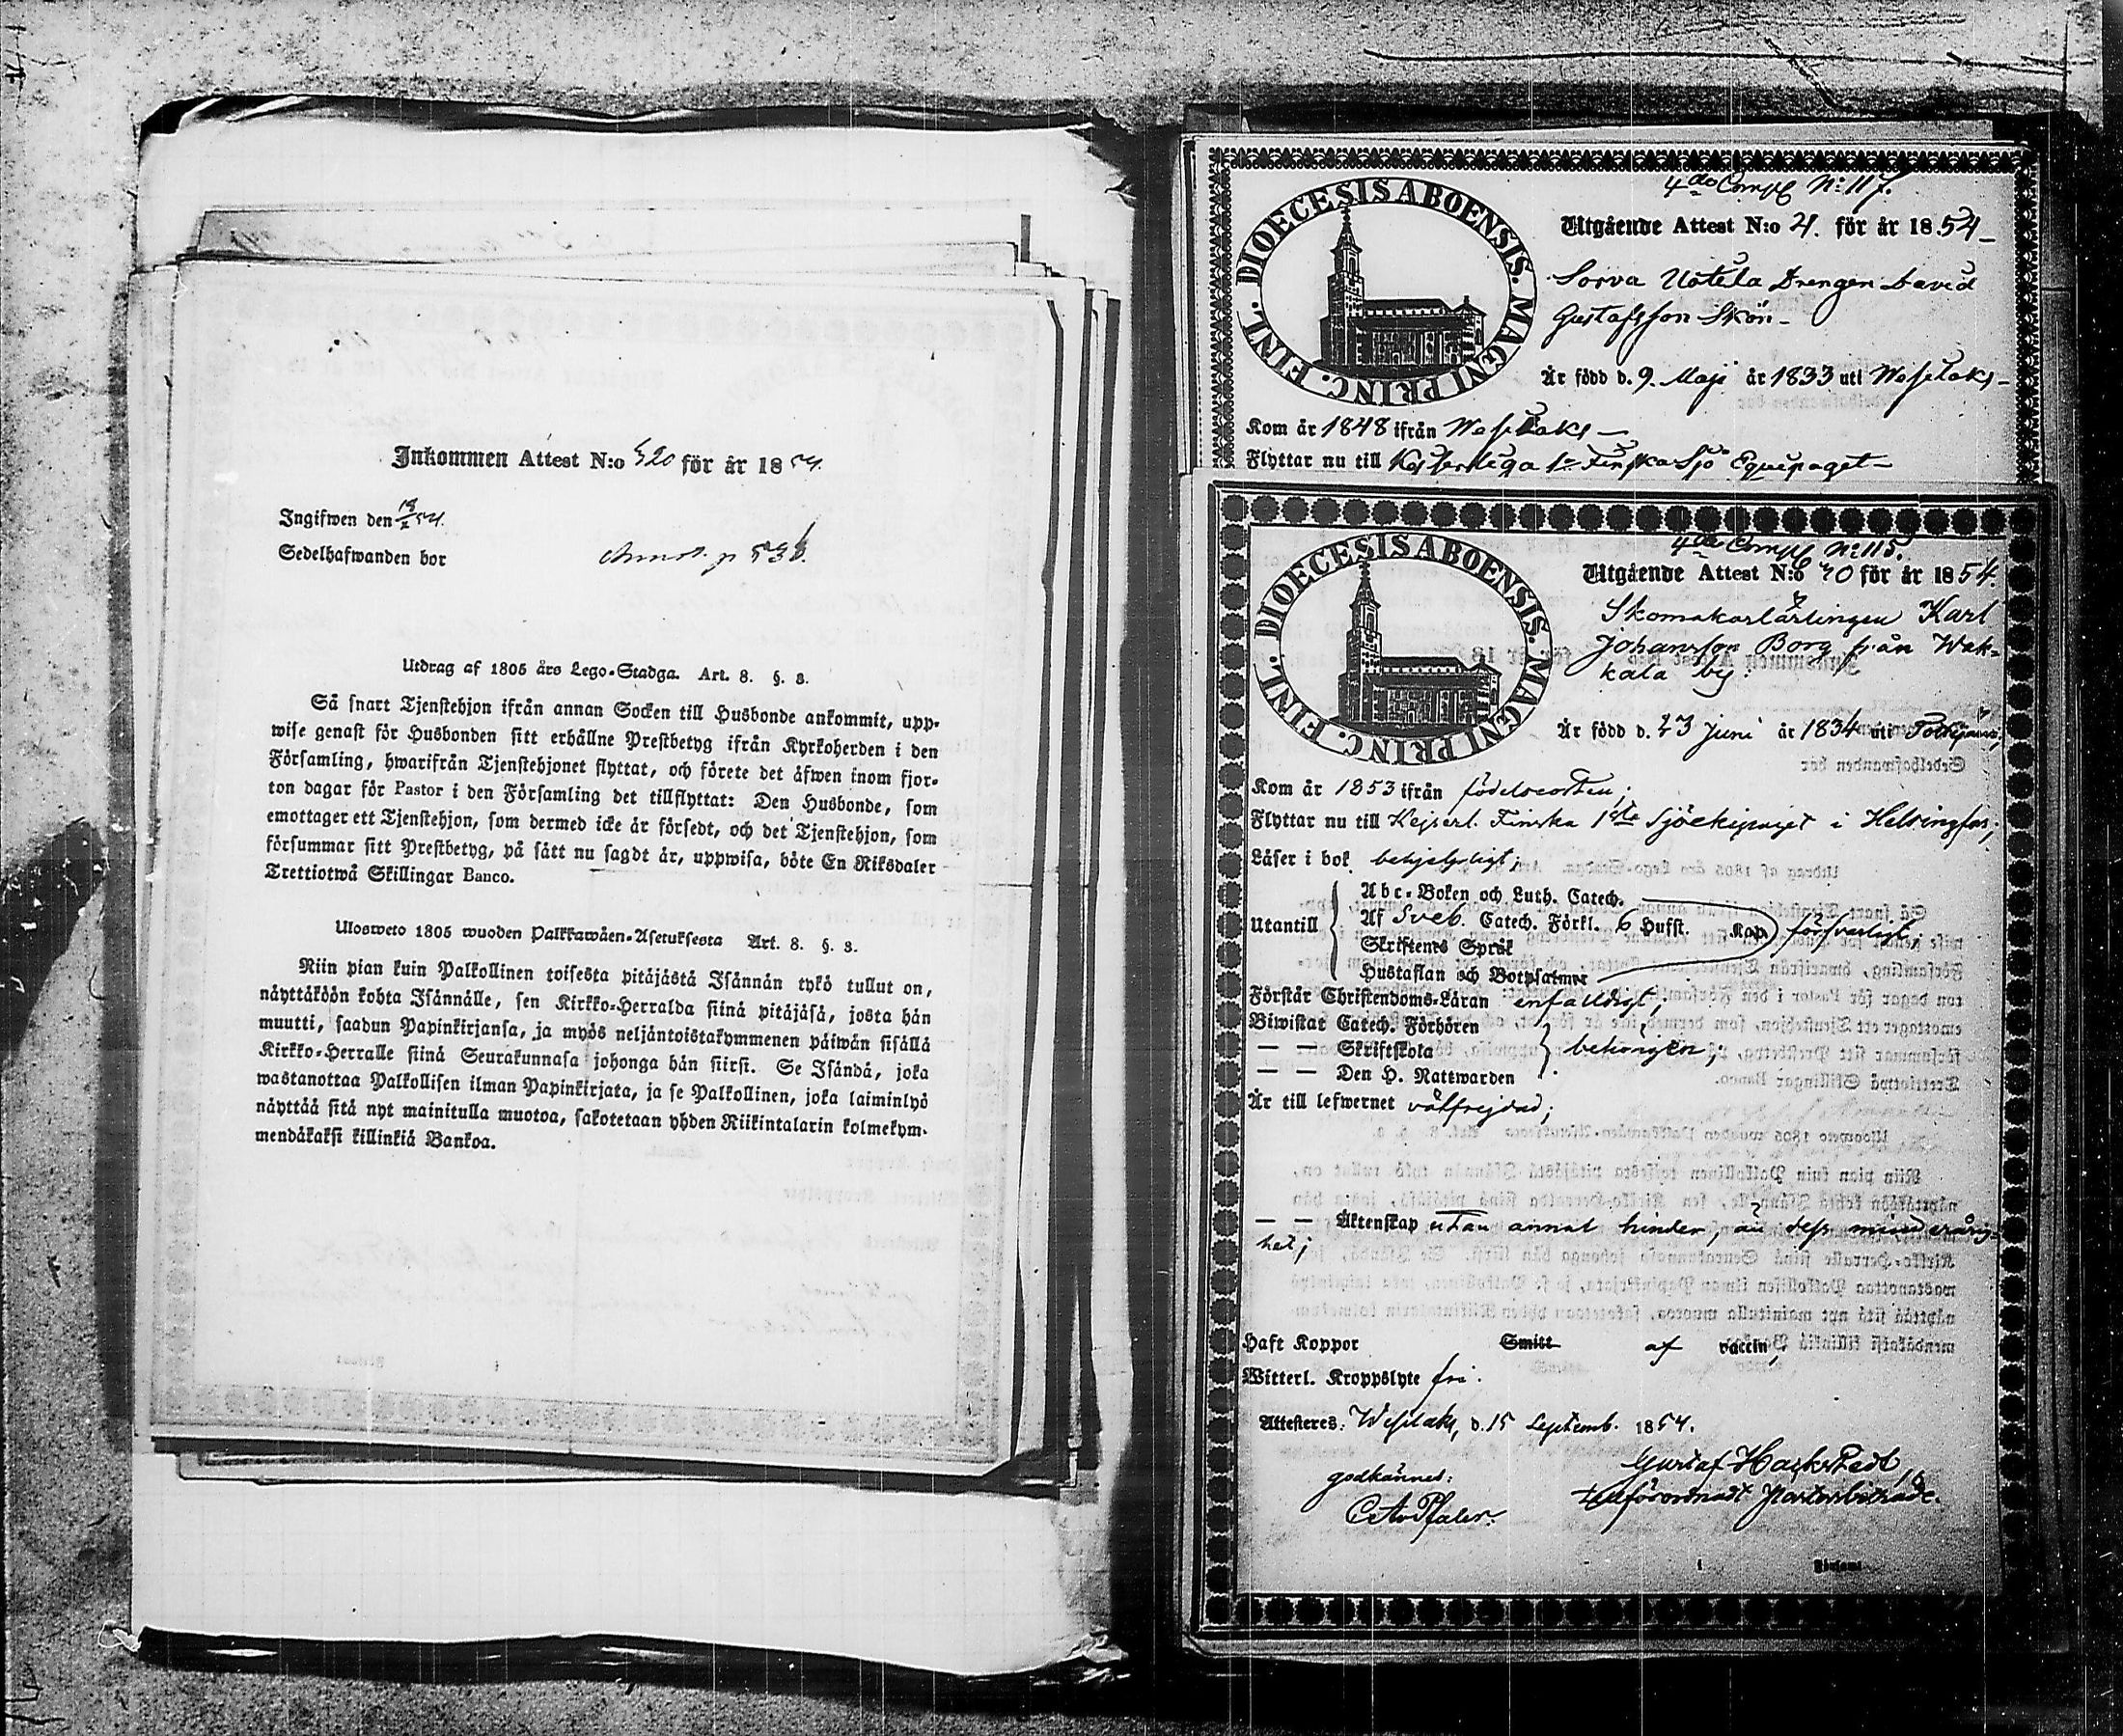 Inkommen Attest N:o 520 för år 1854.
Ingifwen den 18/x 54.
Sedelhafwanden bor p 536.
Utdrag af 1805 års Lego-Stadga. Art. 8. §. 8.
Så snart Tjenstehjon ifrån annan Socken till Husbonde ankommit, upp-
wise genast för Husbonden sitt erhållne Prestbetyg ifrån Kyrkoherden i den
Församling, hwarifrån Tjenstehjonet flyttat, och förete det äfwen inom fjor-
ton dagar för Pastor i den Församling det tillflyttat: Den Husbonde, som
emottager ett Tjenstehjon, som dermed icke är försedt, och det Tjenstehjon, som
försummar sitt Prestbetyg, på sätt nu sagdt är, uppwisa, böte En Riksdaler
Trettiotwå Skillingar Banco.
Ulosweto 1805 wuoden Palkkawäen-Asetuksesta Art. 8. §. 8.
Niin pian kuin Palkollinen toisesta pitäjästä Isännän tykö tullut on,
näyttäköön kohta Isännälle, sen Kirkko-Herralda siinä pitäjäsä, josta hän
muutti, saadun Papinkirjansa, ja myös neljäntoistakymmenen päiwän sisällä
Kirkko-Herralle siinä Seurakunnasa johonga hän siirsi. Se Isändä, joka
wastanottaa Palkollisen ilman Papinkirjata, ja se Palkollinen, joka laiminlyö
näyttää sitä nyt mainitulla muotoa, sakotetaan yhden Riikintalarin kolmekym-
mendäkaksi killinkiä Bankoa.
4de Comp N:117.
DIOECESIS ABOENSIS. MAGNI PRINC. FINL.
Utgående Attest N:o 21. för år 1854
Sorva Uotila Drengen David
Gustafsson Skön
Är född d. 9. Maji år 1833 uti Wesilaks
Kom år 1848 ifrån Wesilaks
Flyttar nu till Kejserliga 1a Finska Sjö Equipaget
4de Comp N:115.
DIOECESIS ABOENSIS. MAGNI PRINC. FINL.
Utgående Attest N:o 70 för år 1854.
Skomakarlärlingen Karl
Johansson Borg från Wak-
kala by.
Är född d. 23 Juni år 1834 uti
Kom år 1853 ifrån födelseorten;
Flyttar nu till Kejserl. Finska 1sta Sjöekipaget i Helsingfors;
Läser i bok behjelpligt;
Utantill
Abc-Boken och Luth. Catech.
Af Sveb. Catech. Förkl. 6 Hufst. Kap. försvarligt;
Skriftenes Språk
Hustaflan och Botpsalmer
Förstår Christendoms-Läran enfaldigt;
Biwistat Catech. Förhören
— — Skriftskola behörigen;
— — Den H. Nattwarden
Är till lefwernet välfrejdad;
— — Äktenskap utan annat hinder, än dess minderårig-
het;
Haft Koppor Smitt af vaccin,
Witterl. Kroppslyte fri.
Attesteres: Wesilaks, d. 15 Septemb. 1854.
Gustaf Hackstedt
Tillförordnadt Pastorsbiträde.
godkännes:
C A v Pfaler.